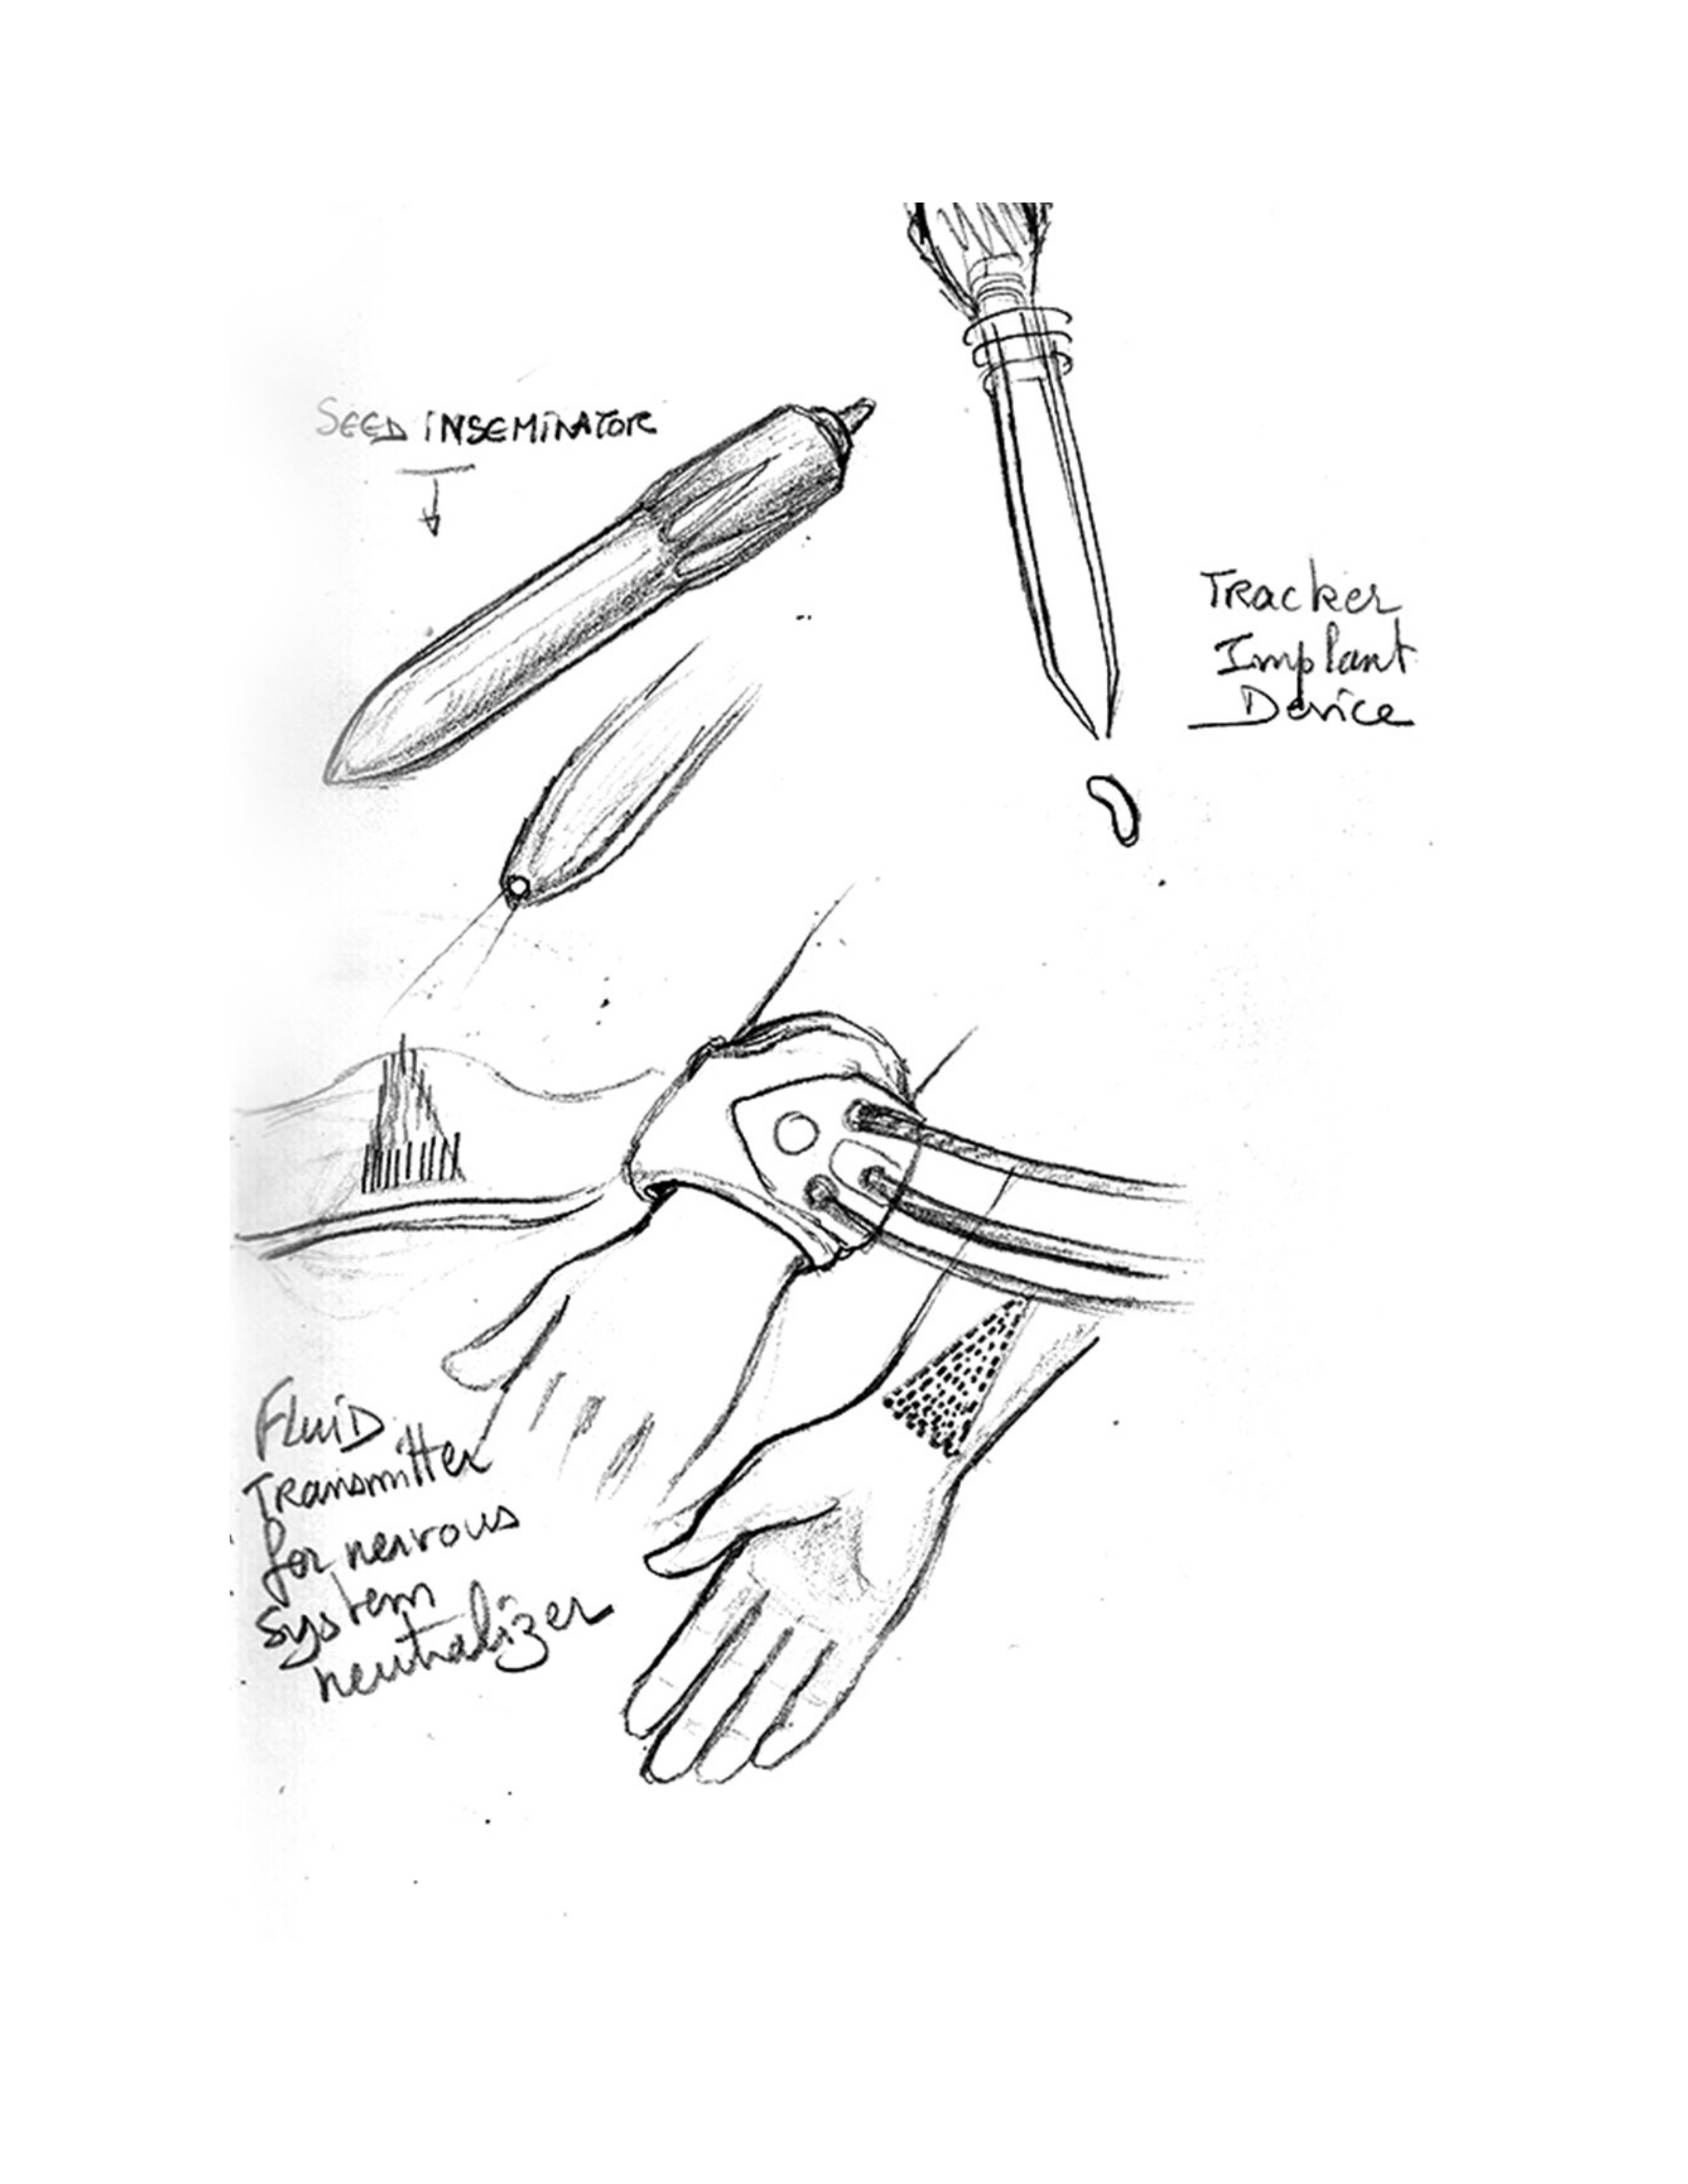 SEED INSEMINATOR
Tracker
Implant
Device
Fluid
Transmitter
for nervous
system
neutralizer